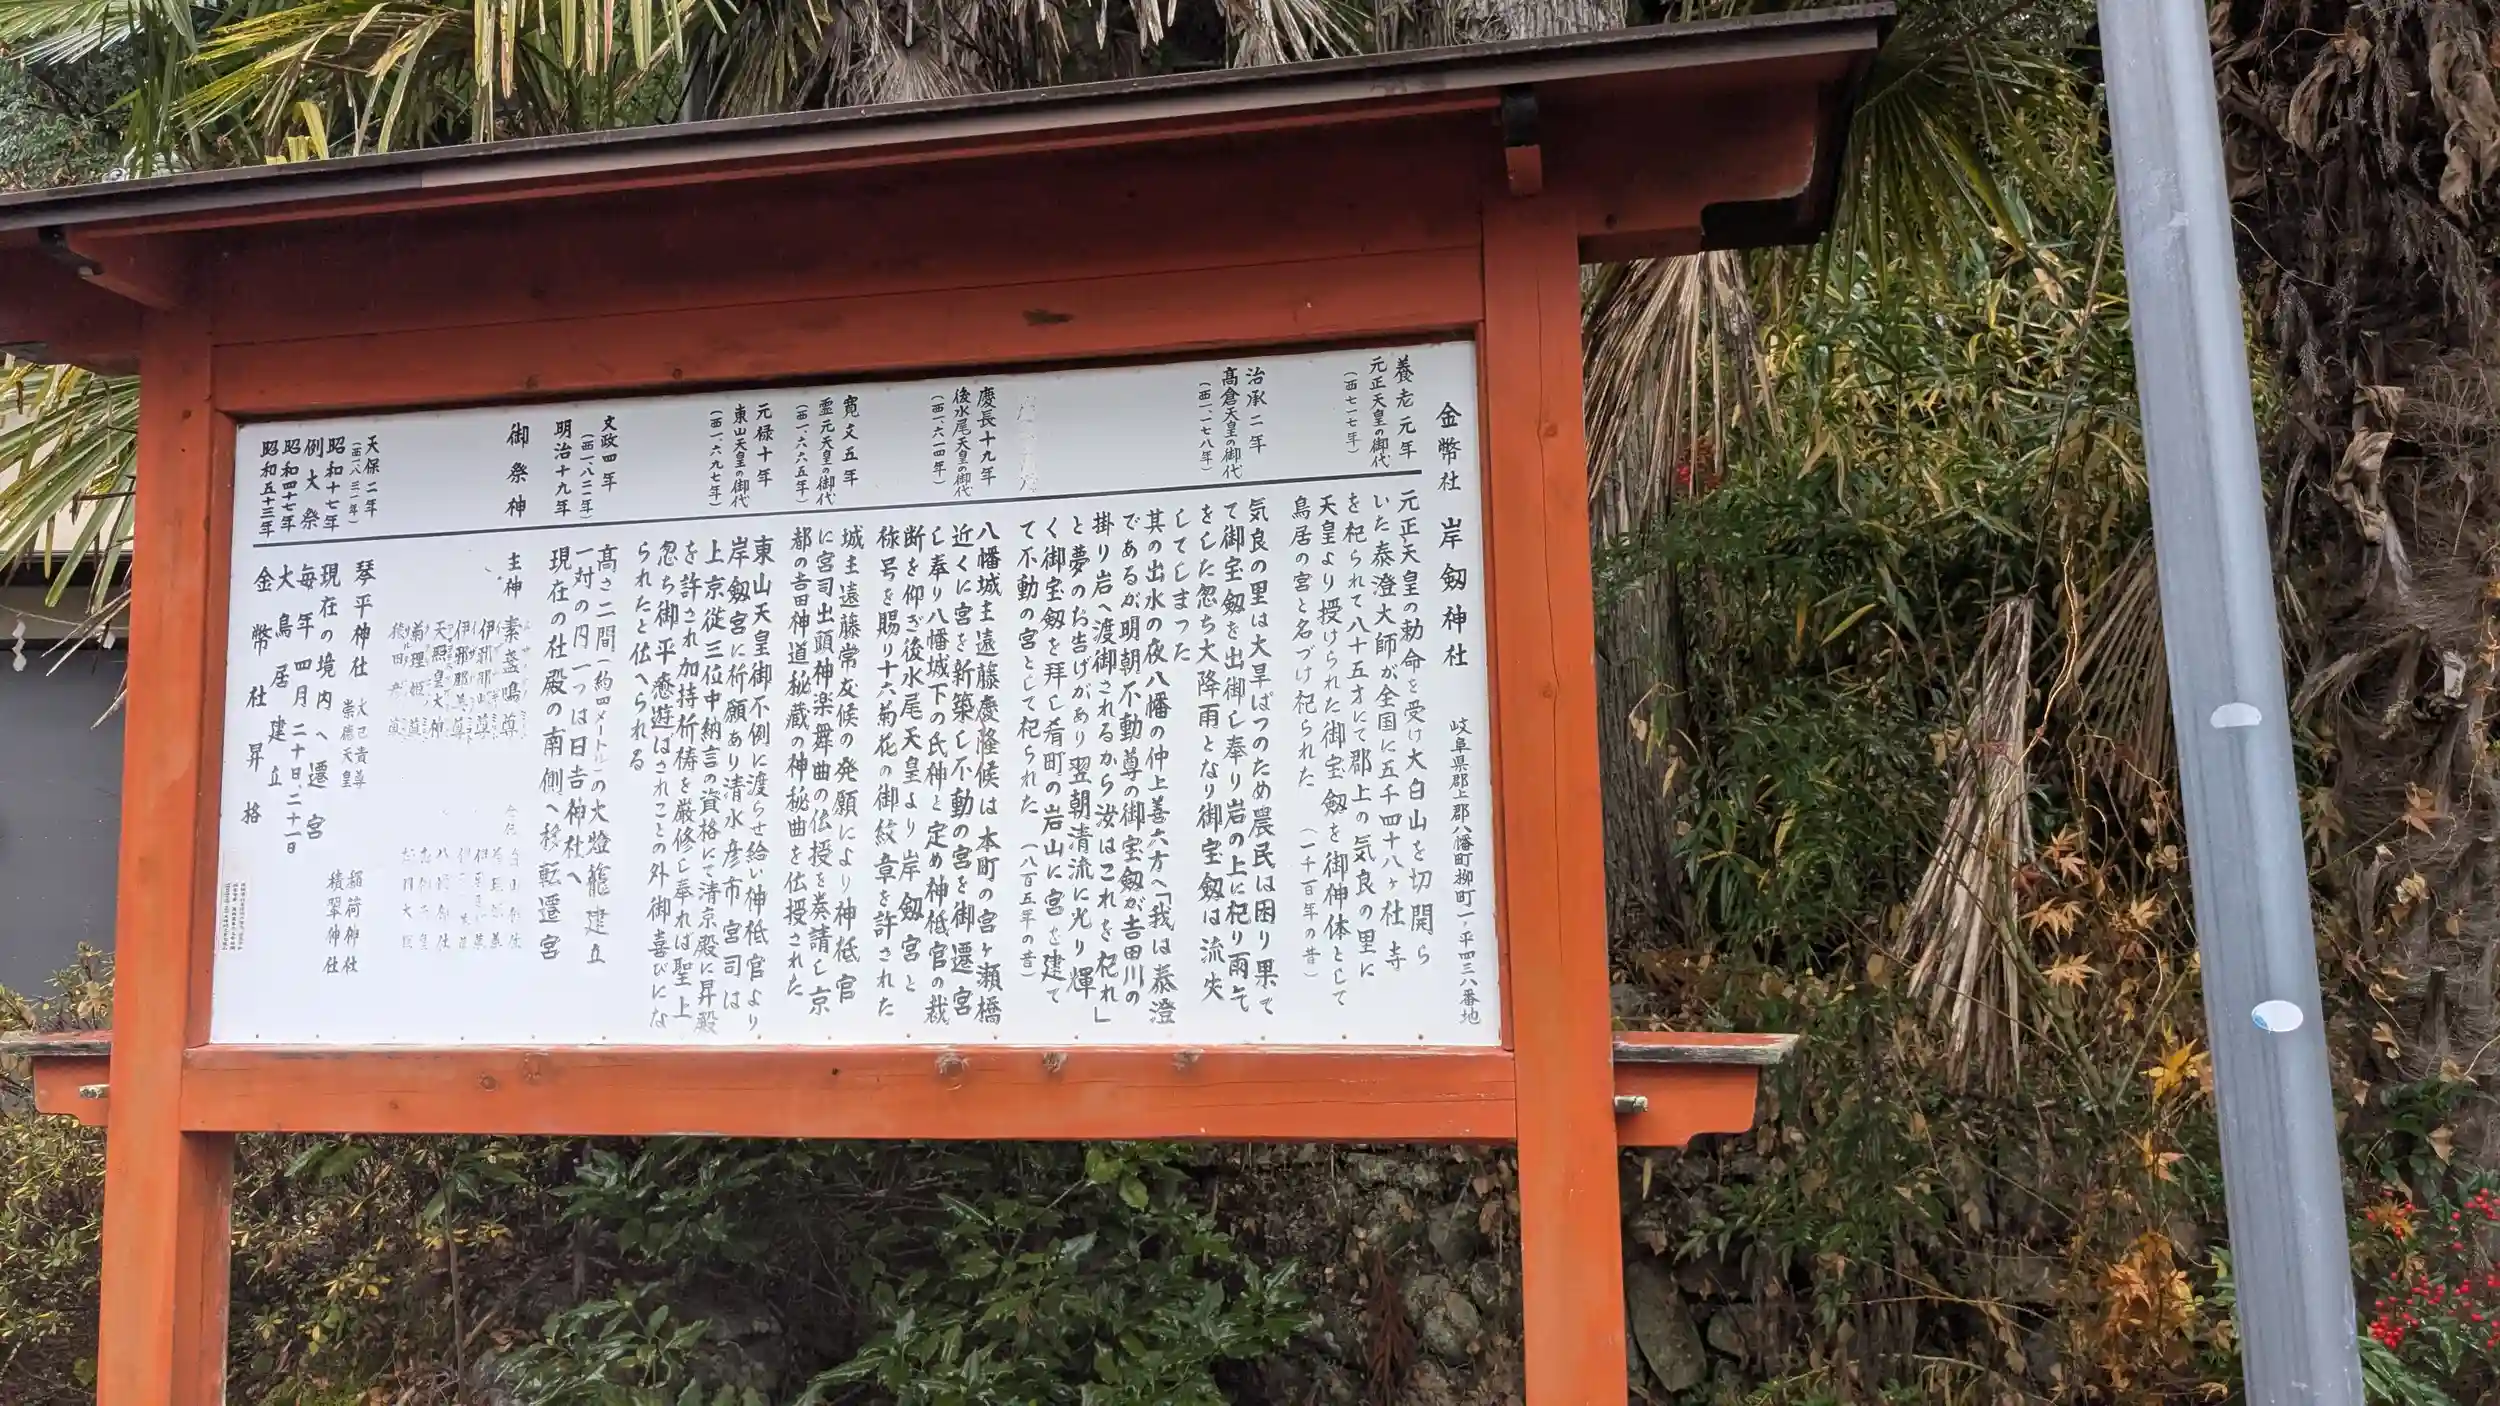 金幣社 岸劔神社 岐阜県郡上郡八幡町柳町一ノ平四三八番地
養老元年
元正天皇の御代
(西七一七年)
元正天皇の勅命を受け大白山を切開ら
いた泰澄大師が全国に五千四十八ヶ社寺
を祀られて八十五才にて郡上の気良の里に
天皇より授けられた御宝劔を御神体として
鳥居の宮と名づけ祀られた (一千百年の昔)
治承二年
高倉天皇の御代
(西一、一七八年)
気良の里は大旱ばつのため農民は困り果て
て御宝劔を出御し奉り岩の上に祀り雨乞
をした忽ち大降雨となり御宝劔は流失
してしまった
其の出水の夜八幡の仲上善六方へ「我は泰澄
であるが明朝不動尊の御宝劔が吉田川の
掛り岩へ渡御されるから汝はこれを祀れ」
と夢のお告げがあり翌朝清流に光り輝
く御宝劔を拝し肴町の岩山に宮を建て
て不動の宮として祀られた (八百五年の昔)
慶長十九年
後水尾天皇の御代
(西一、六一四年)
八幡城主遠藤慶隆候は本町の宮ヶ瀬橋
近くに宮を新築し不動の宮を御遷宮
し奉り八幡城下の氏神と定め神祇官の裁
断を仰ぎ後水尾天皇より岸劔宮と
称号を賜り十六菊花の御紋章を許された
寛文五年
霊元天皇の御代
(西一、六六五年)
城主遠藤常友候の発願により神祇官
に宮司出頭神楽舞曲の伝授を奏請し京
都の吉田神道秘蔵の神秘曲を伝授された
元禄十年
東山天皇の御代
(西一、六九七年)
東山天皇御不例に渡らせ給い神祇官より
岸劔宮に祈願あり清水彦市宮司は
上京従三位中納言の資格にて清京殿に昇殿
を許され加持祈祷を厳修し奉れば聖上
忽ち御平癒遊ばされことの外御喜びにな
られたと伝へられる
文政四年
(西一、八二一年)
高さ二間(約四メートル)の大燈籠建立
一対の内一つは日吉神社へ
明治十九年 現在の社殿の南側へ移転遷宮
御祭神 主神 素盞嗚尊
伊邪那岐尊
伊邪那美尊
天照皇大神
菊理姫尊
天保二年
(西一、八三一年)
琴平神社 大己貴尊
崇徳天皇
稲荷神社
積翠神社
昭和十七年 現在の境内へ遷宮
例大祭 毎年四月二十日、二十一日
昭和四十七年 大鳥居建立
昭和五十三年 金幣社昇格